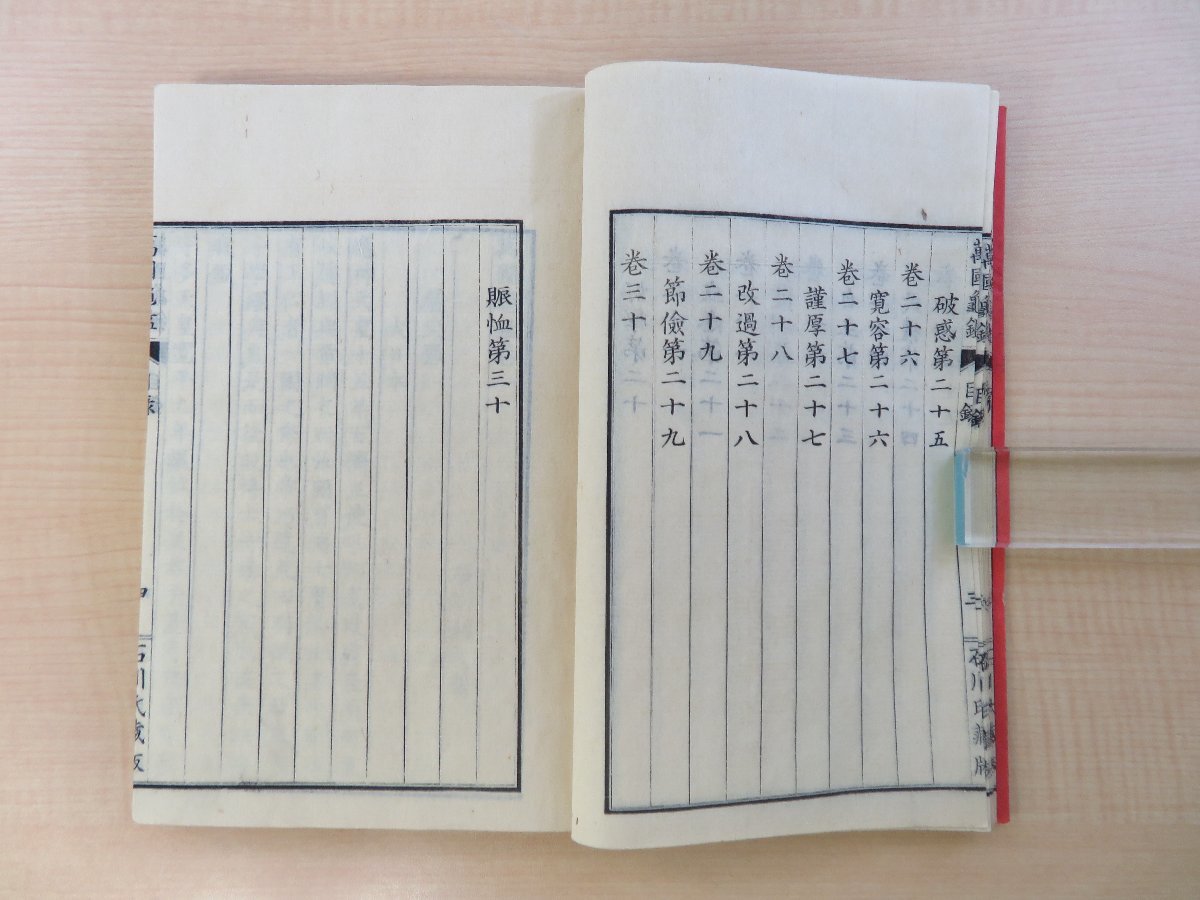 萬國龜鑑
目錄
三
石川氏藏版
破惑第二十五
卷二十六
寬容第二十六
卷二十七
謹厚第二十七
卷二十八
改過第二十八
卷二十九
節儉第二十九
卷三十
賑恤第三十